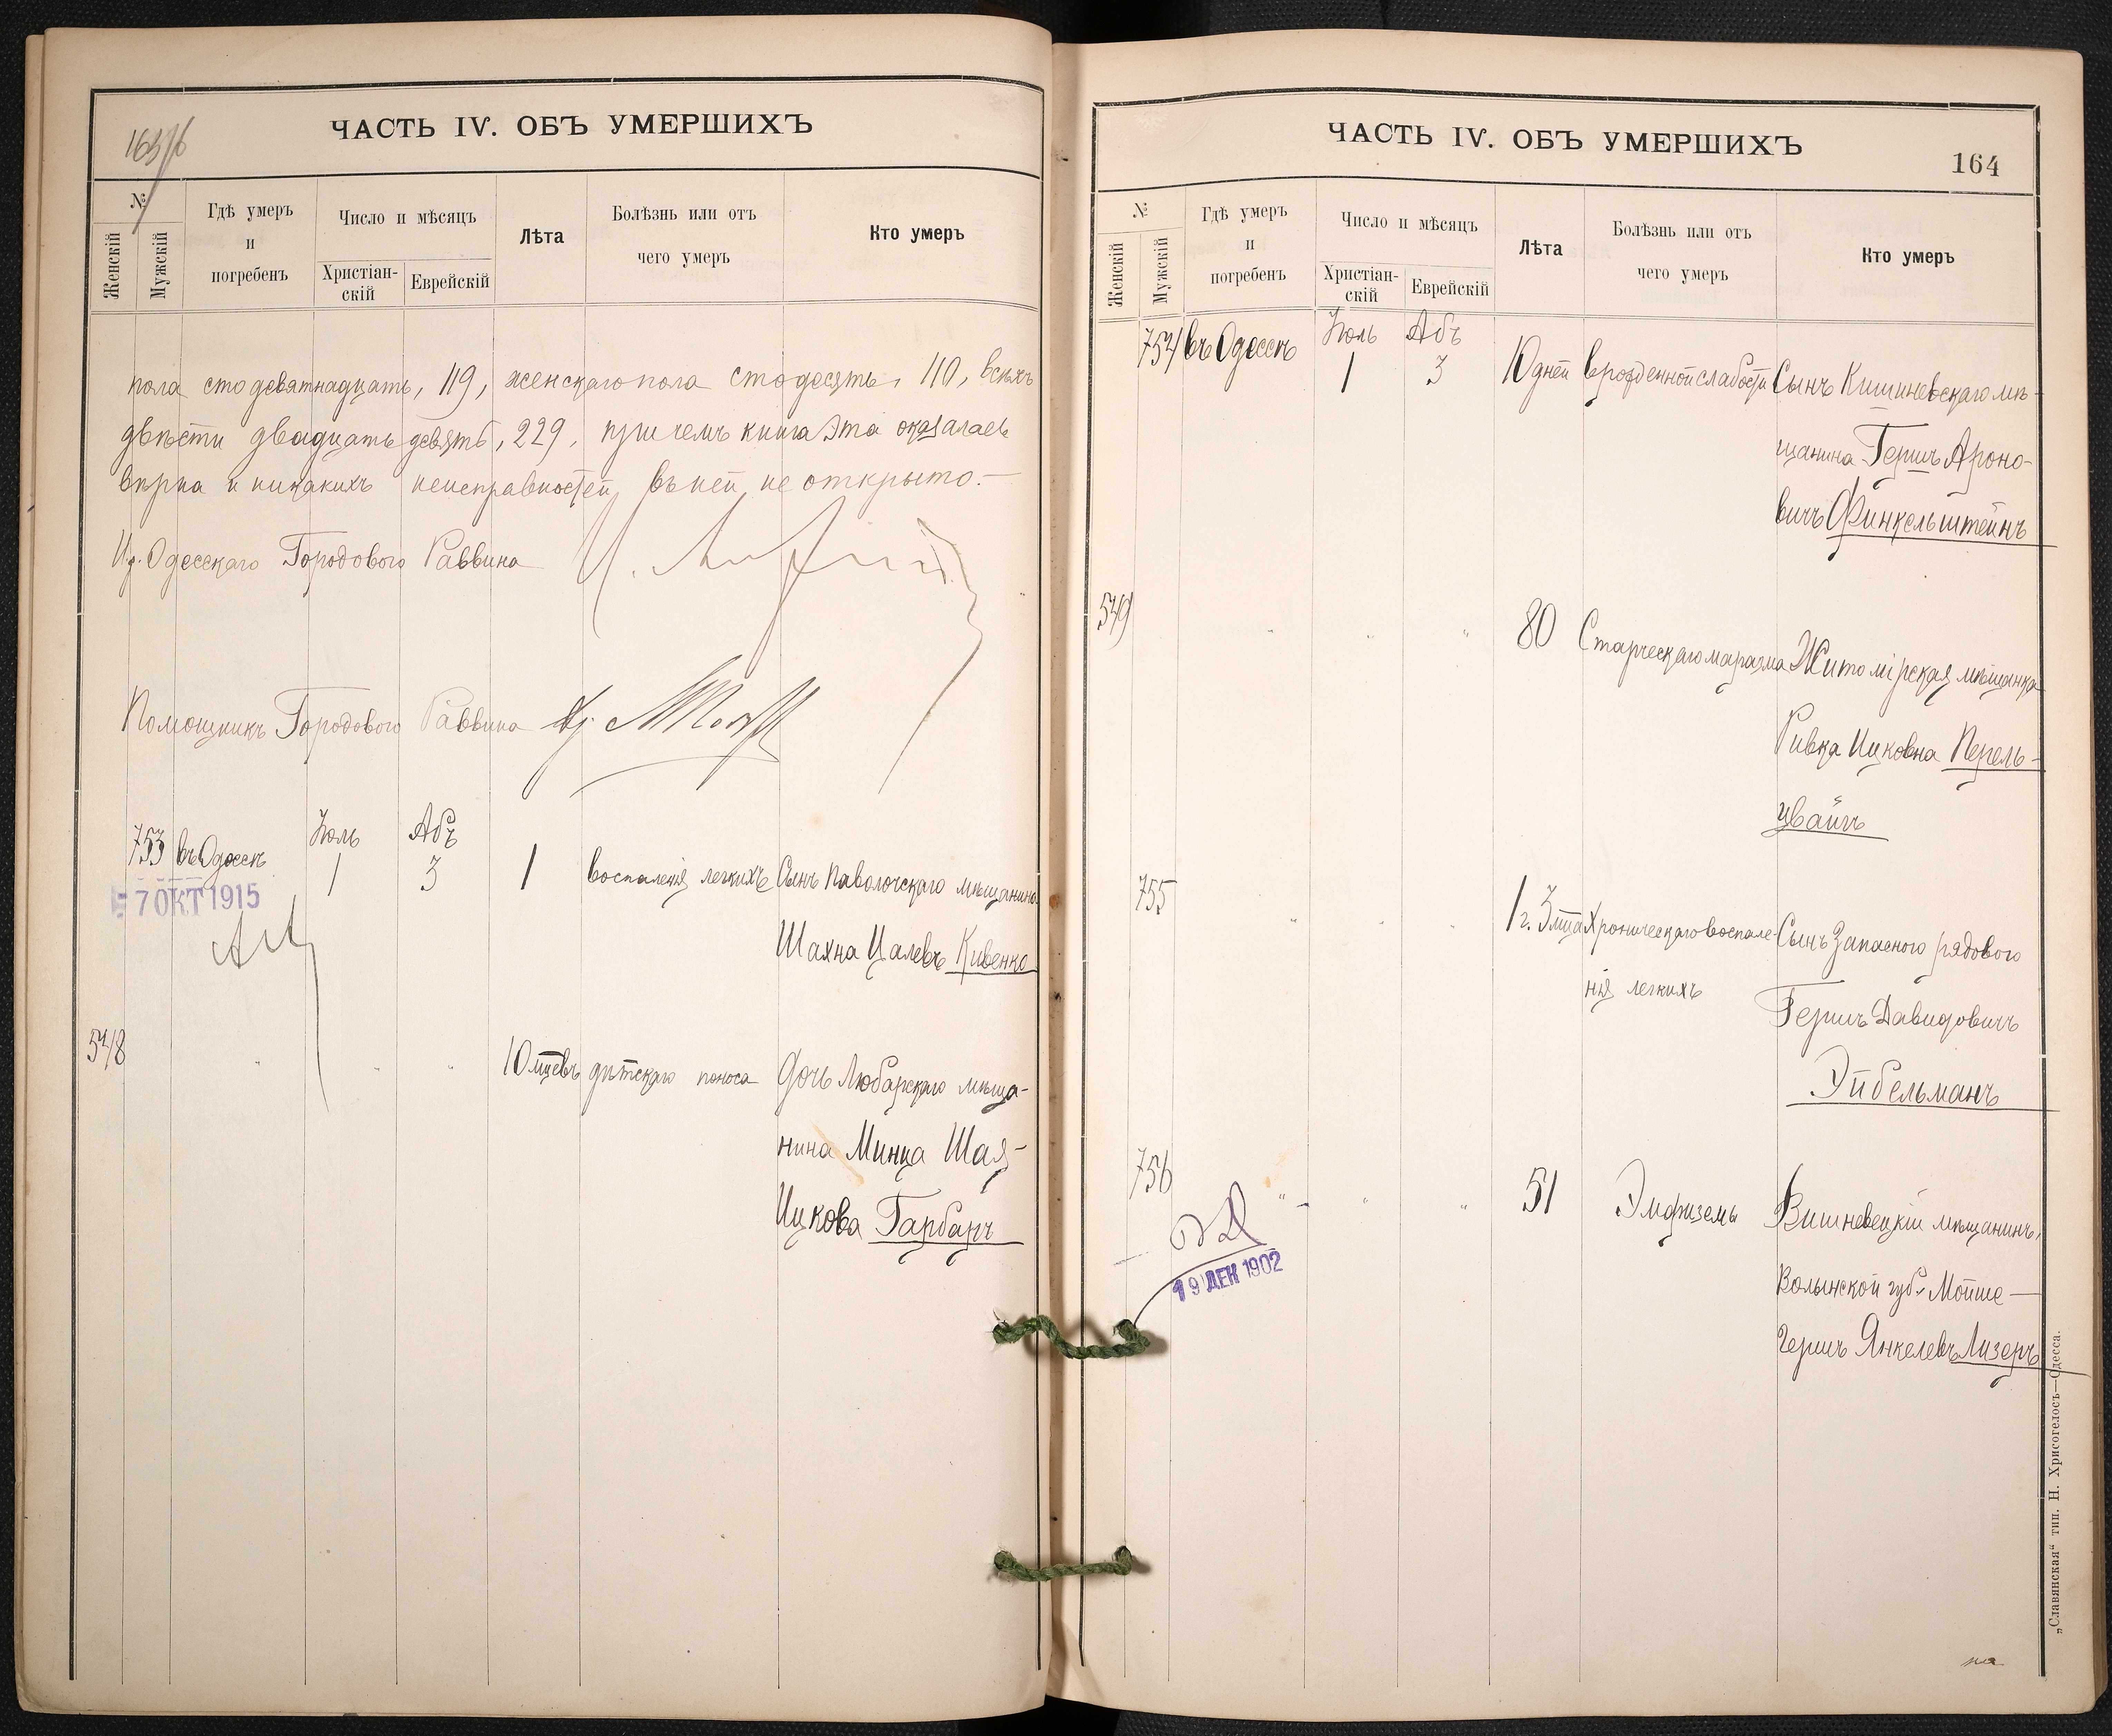 ЧАСТЬ IV. ОБЪ УМЕРШИХЪ
№
Женскій
Мужскій
Гдѣ умеръ
и
погребенъ
Число и мѣсяцъ
Христіан-
скій
Еврейскій
Лѣта
Болѣзнь или отъ
чего умеръ
Кто умеръ
пола сто девятнадцать, 119, женскаго пола сто десять, 110, всѣхъ
двѣсти двадцать девять, 229, при чемъ книга эта оказалась
вѣрна и никакихъ неисправностей въ ней не открыто.—
И. д. Одесскаго Городового Раввина
Помощникъ Городового Раввина
Іюль Абъ
753 въ Одессѣ 1 3 1 воспаленія легкихъ Сынъ Паволочскаго мѣщанина
7 ОКТ 1915
Шахна Цалевъ Кивенко
548 " " " 10 мцевъ дѣтскаго поноса Дочь Любарскаго мѣща-
нина Минца Шая-
Ицкова Гарбаръ
ЧАСТЬ IV. ОБЪ УМЕРШИХЪ
164
№
Женскій
Мужскій
Гдѣ умеръ
и
погребенъ
Число и мѣсяцъ
Христіан-
скій
Еврейскій
Лѣта
Болѣзнь или отъ
чего умеръ
Кто умеръ
Іюль Абъ
754 въ Одессѣ 1 3 10 дней врожденной слабости Сынъ Кишиневскаго мѣ-
щанина Гершъ Ароно-
вичъ Финкельштейнъ
549 " " " 80 Старческаго маразма Житомірская мѣщанка
Ривка Ицковна Перель-
цвайгъ
755 " " " 1 г. 3 мца Хроническаго воспале- Сынъ Запасного рядового
нія легкихъ
Гершъ Давидовичъ
Эйбельманъ
756 " " " 51 Эмфиземы Вишневецкій мѣщанинъ,
Волынской губ. Мойше-
19 ДЕК 1902
Гершъ Янкелевъ Лизеръ
на
„Славянская“ тип. Н. Хрисогелосъ—Одесса.